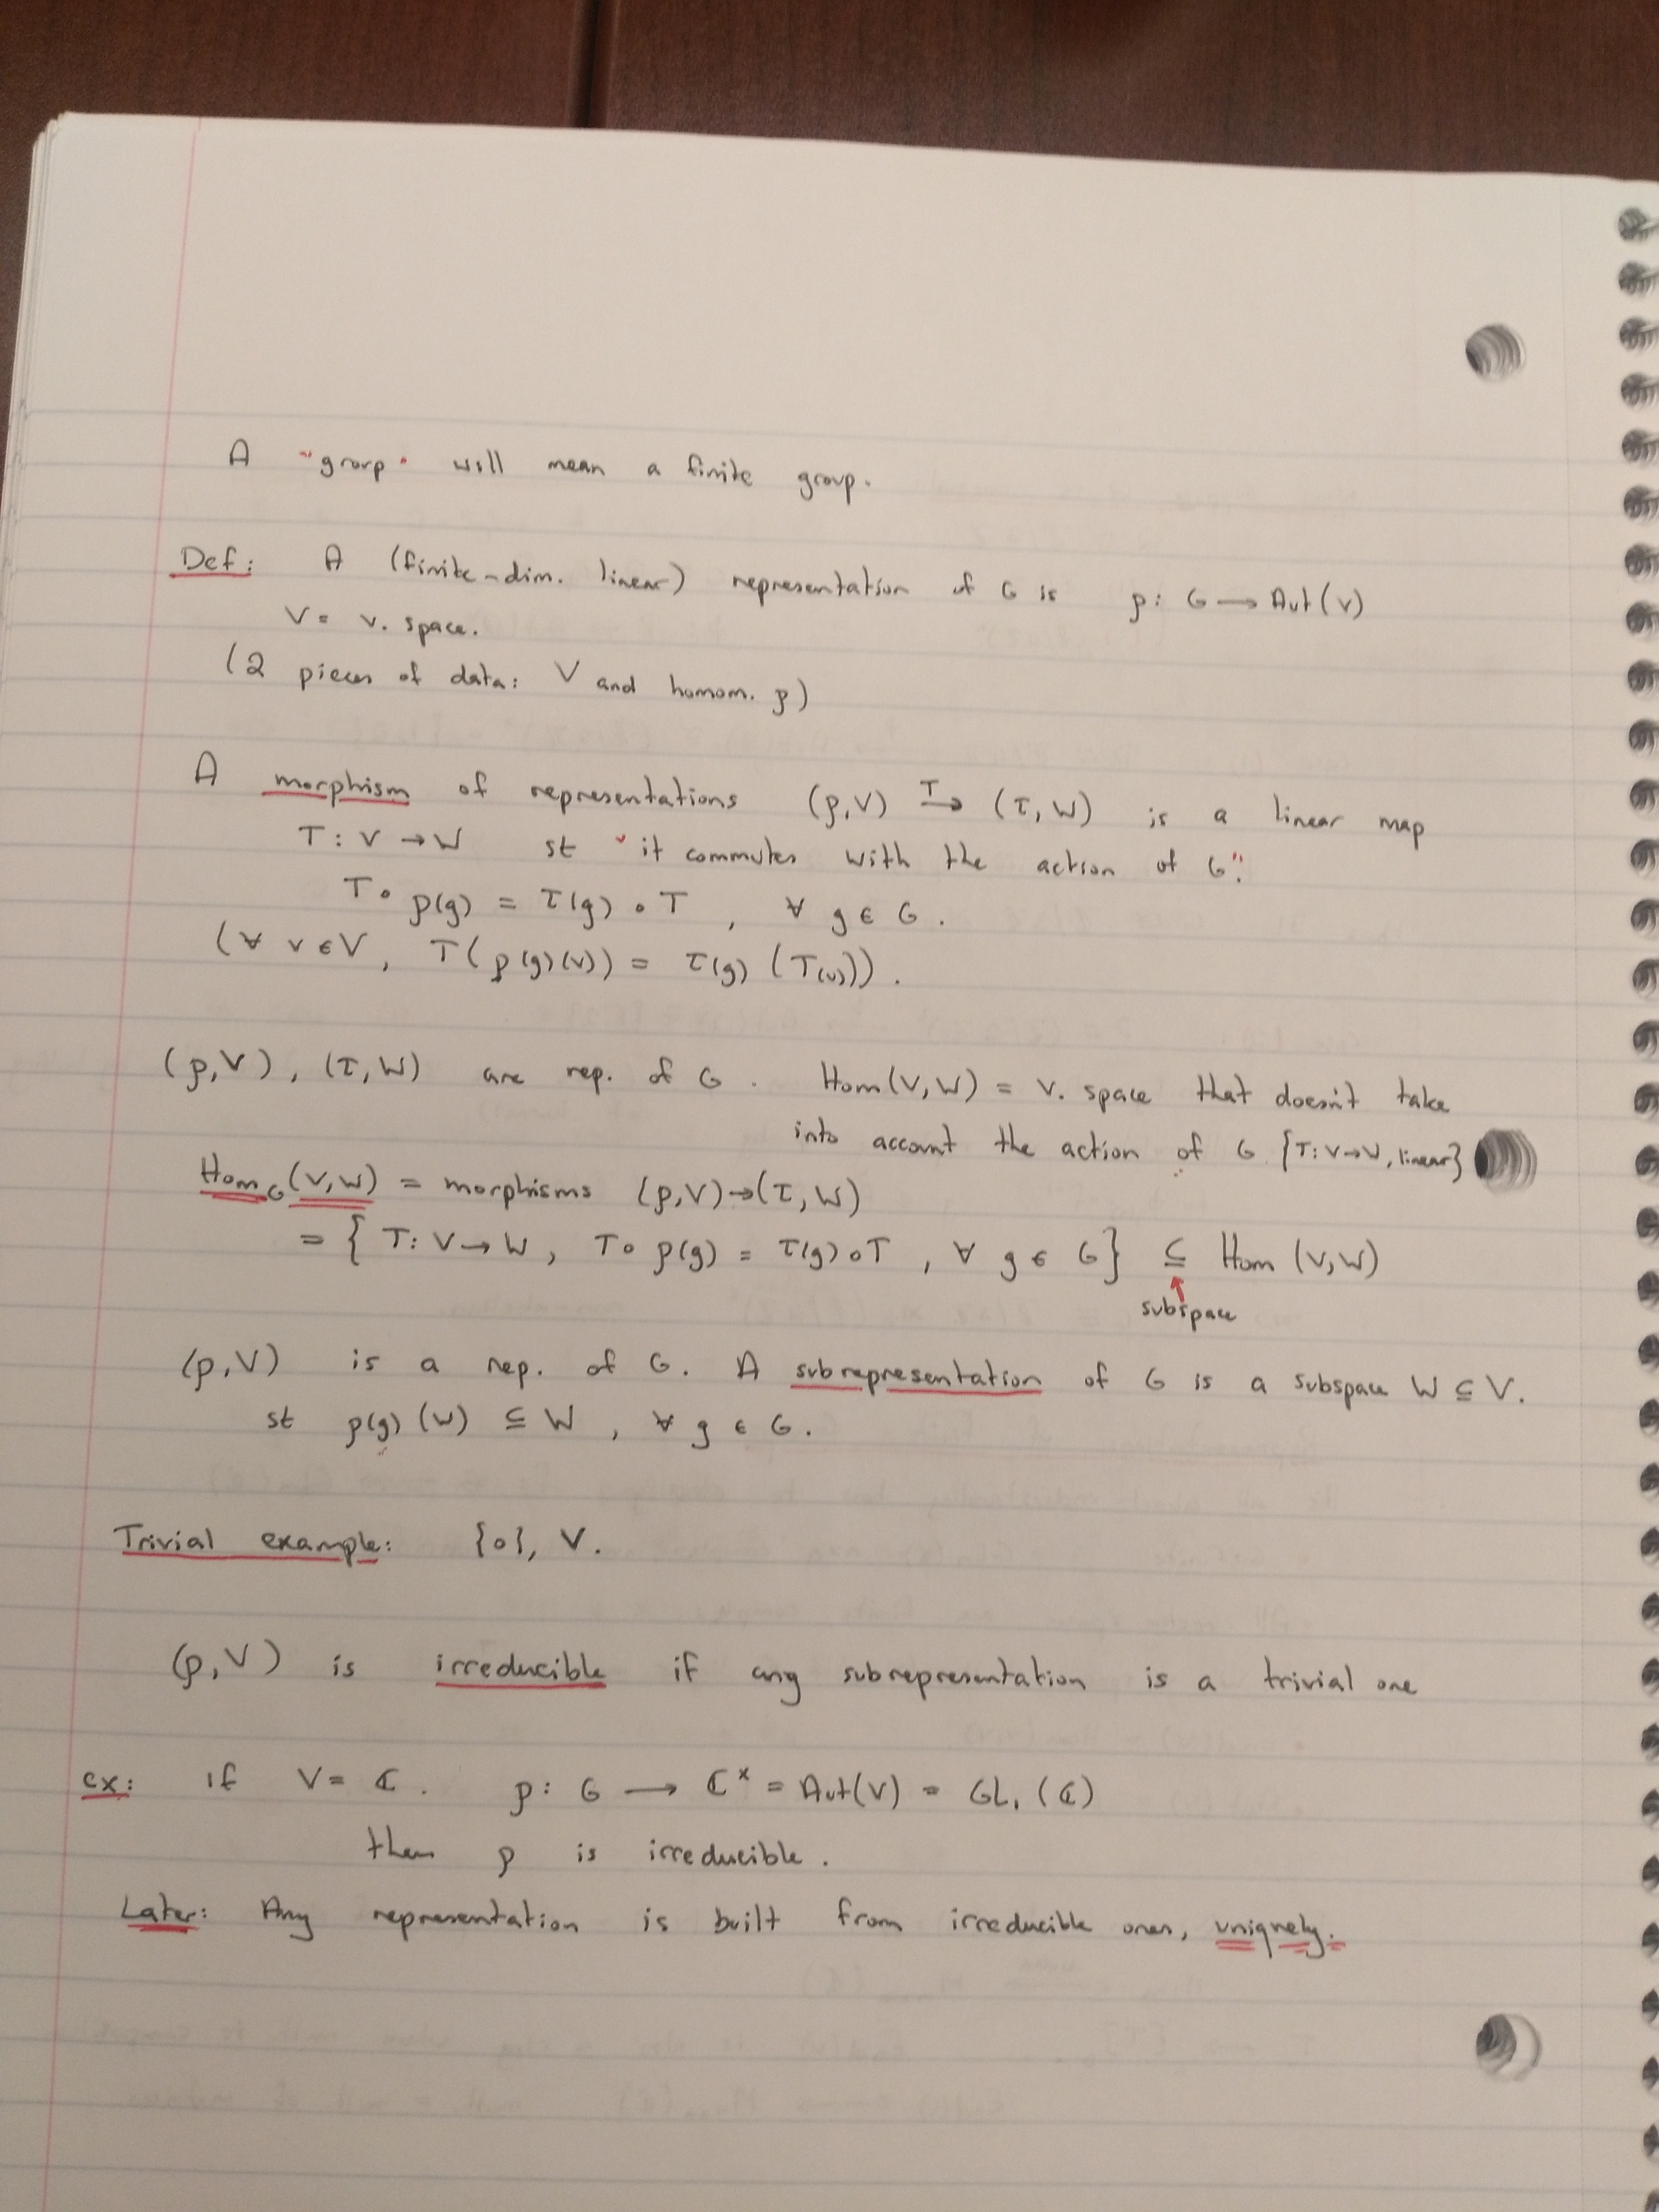 A "group" will mean a finite group.
Def: A (finite-dim. linear) representation of G is ρ: G → Aut(V)
V = v. space.
(2 pieces of data: V and homom. ρ)
A morphism of representations (ρ,V) T→ (τ,W) is a linear map
T: V → W st "it commutes with the action of G":
T∘ρ(g) = τ(g)∘T, ∀ g ∈ G.
(∀ v ∈ V, T(ρ(g)(v)) = τ(g)(T(v))).
(ρ,V), (τ,W) are rep. of G. Hom(V,W) = v. space that doesn't take
into account the action of G {T: V→W, linear}
Hom_G(V,W) = morphisms (ρ,V)→(τ,W)
= {T: V→W, T∘ρ(g) = τ(g)∘T, ∀ g ∈ G} ⊆ Hom(V,W)
subspace
(ρ,V) is a rep. of G. A subrepresentation of G is a subspace W ⊆ V.
st ρ(g)(W) ⊆ W, ∀ g ∈ G.
Trivial example: {0}, V.
(ρ,V) is irreducible if any subrepresentation is a trivial one
ex: if V = ℂ. ρ: G → ℂ^× = Aut(V) = GL₁(ℂ)
then ρ is irreducible.
Later: Any representation is built from irreducible ones, uniquely.